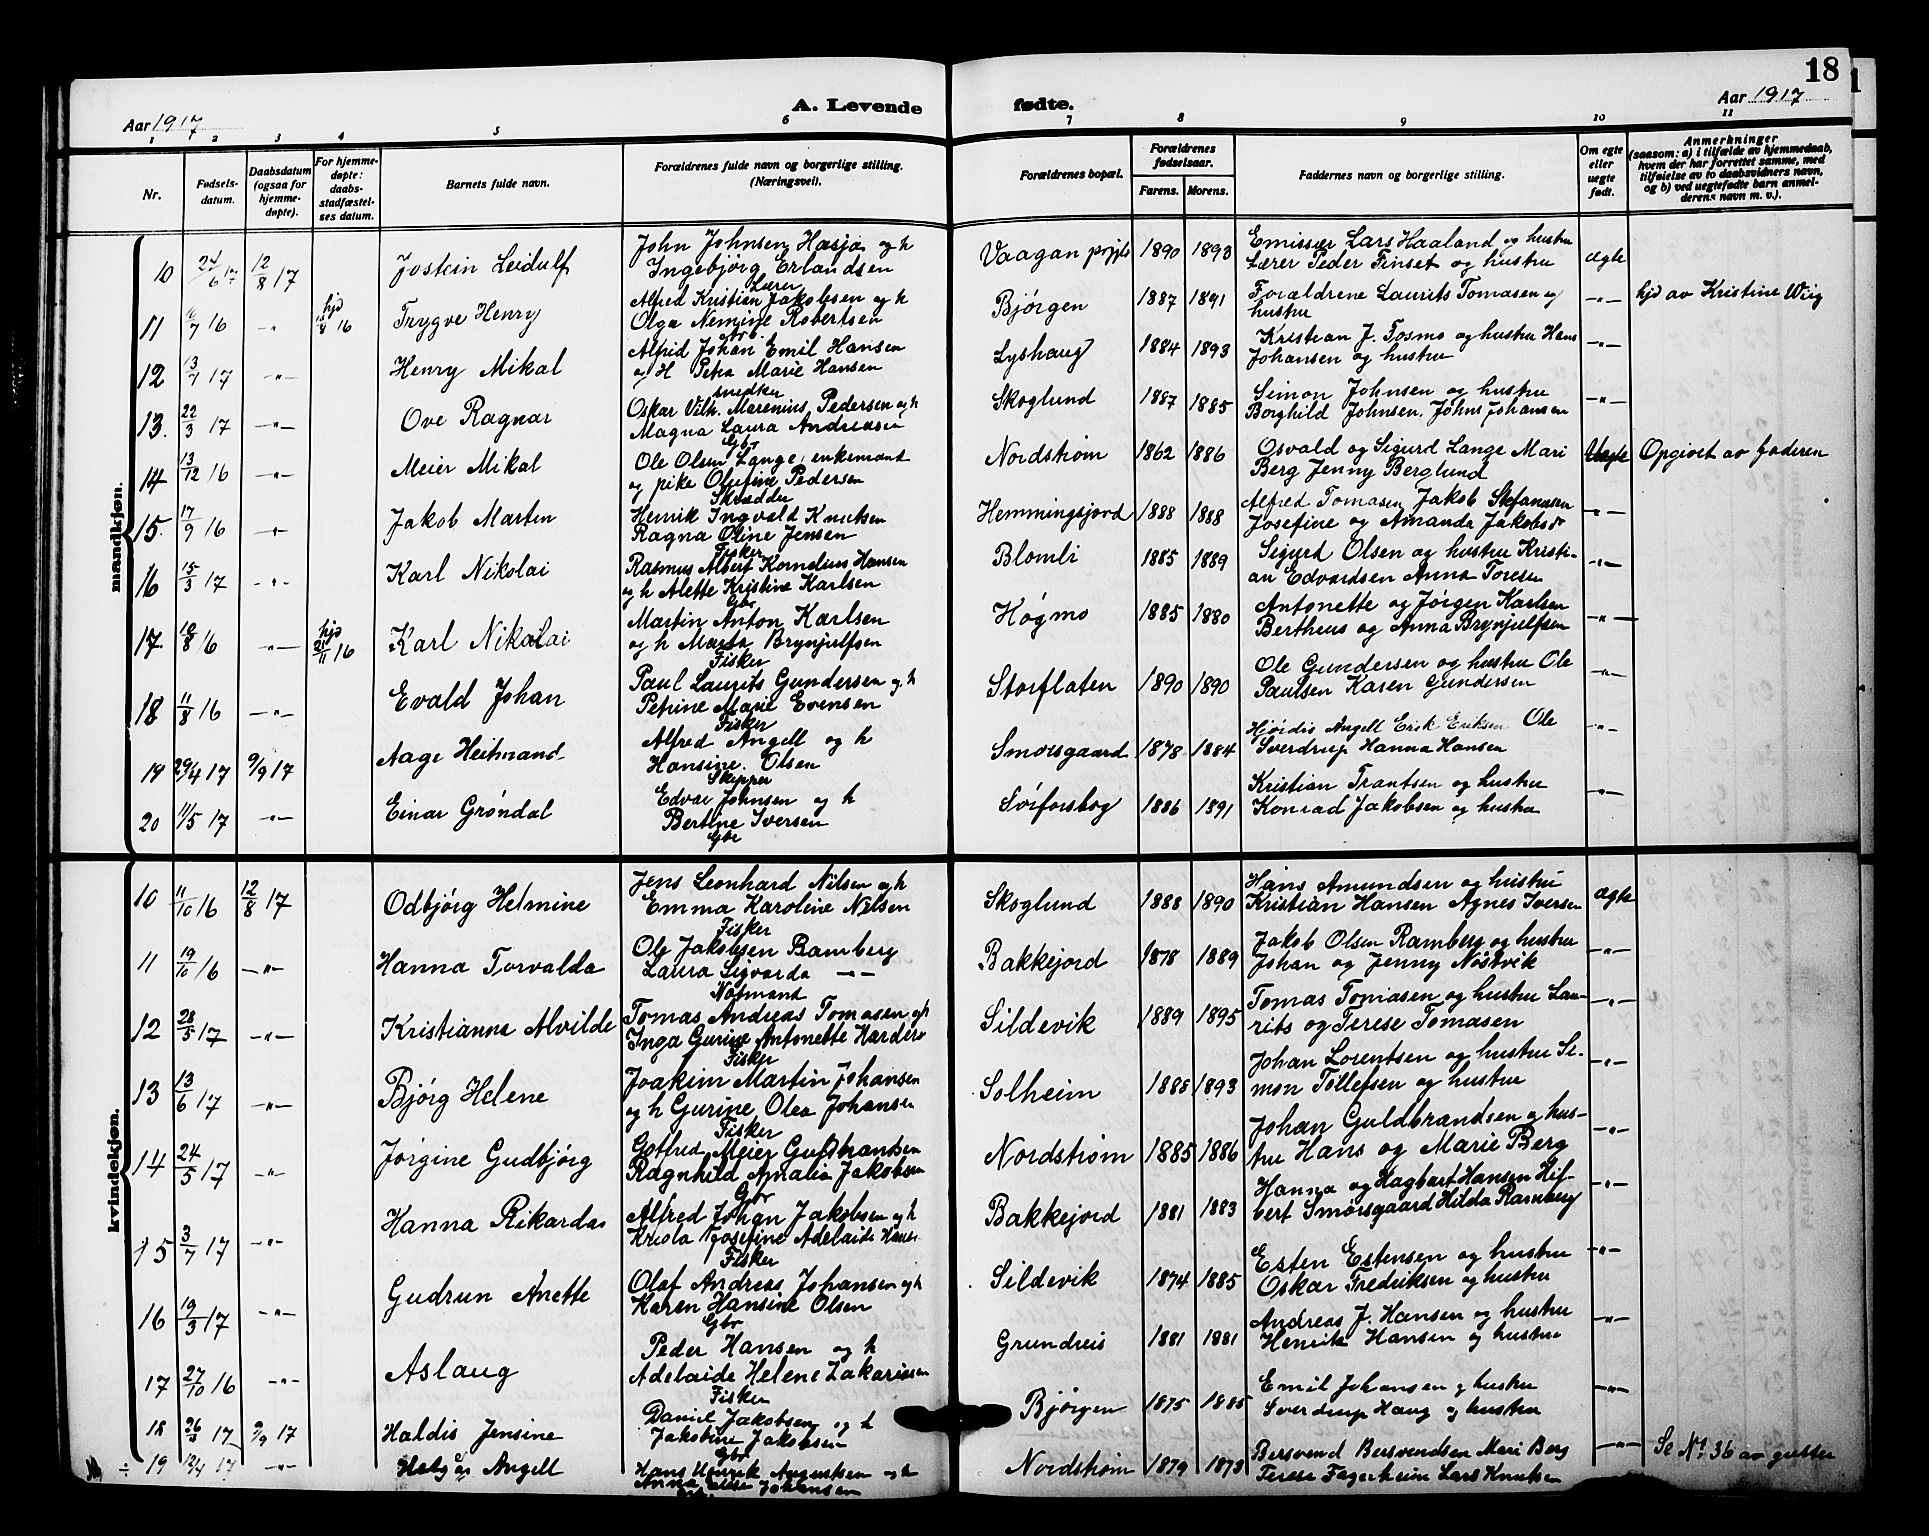 18
A. Levende fødte.
Aar 1917
Aar 1917
1 2 3 4 5 6 7 8 9 10 11
Nr.
Fødsels-
datum.
Daabsdatum
(ogsaa for
hjemme-
døpte).
For hjemme-
døpte:
daabs-
stadfæstel-
ses datum.
Barnets fulde navn.
Forældrenes fulde navn og borgerlige stilling.
(Næringsvei).
Forældrenes bopæl.
Forældrenes
fødselsaar.
Farens. Morens.
Faddernes navn og borgerlige stilling.
Om egte
eller
uegte
født.
Anmerkninger
(saasom: a) i tilfælde av hjemmedaab,
hvem der har forrettet samme, med
tilføielse av to daabsvidners navn,
og b) ved uegtefødte barn anmel-
derens navn m. v.).
mandkjøn.
10 24/6 17 12/8 17 Jostein Leidulf
John Johnsen Hasjø og h
Ingebjørg Erlandsen
Lærer
Vaagan prgjls 1890 1893
Emissær Lars Haaland og hustru
Lærer Peder Finset og hustru
ægte
11 /7 16 -"- hjd /8 16 Trygve Henry
Alfred Kristian Jakobsen og h
Olga Nemine Robertsen
Gbr.
Bjørgen 1887 1891
Forældrene Laurits Tomasen og
hustru
-"- hjd av Kristine Wiig
12 13/7 17 -"- Henry Mikal
Alfrid Johan Emil Hansen
og H Petra Marie Hansen
snedker
Lyshaug 1884 1893
Kristian J. Tosmo og hustru Hans
Johansen og hustru
-"-
13. 22/3 17 -"- Ove Ragnar
Oskar Vilh. Marenius Pedersen og h
Magna Laura Andreasen
Gbr
Skoglund 1887 1885
Simon Johnsen og hustru
Borghild Johnsen. Johns Johansen
-"-
14 13/12 16 -"- Meier Mikal
Ole Olsen Lange, enkemand
og pike Olufine Pedersen
Skrædder
Nordstrøm 1862 1886
Osvald og Sigurd Lange Mari
Berg Jenny Berglund
Uegte Opgivet av faderen
15. 17/9 16 -"- Jakob Martin
Henrik Ingvald Knutsen
Ragna Oline Jensen
Fisker
Hemmingsjord 1888 1888
Alfred Tomasen Jakob Stefanusen
Josefine og Amanda Jakobsdr
-"-
16 15/3 17 -"- Karl Nikolai
Rasmus Albert Kornelius Hansen
og h Alette Kristine Karlsen
Gbr
Blomli 1885 1889
Sigurd Olsen og hustru Kristi-
an Edvardsen Anna Toresen
-"-
17. 18/8 16 -"- hjd /11 16 Karl Nikolai
Martin Anton Karlsen
og h Marta Brynjulfsen
Fisker
Høgmo 1885 1880
Antonette og Jørgen Karlsen
Bertheus og Anna Brynjulfsen
-"-
18 11/8 16 -"- Evald Johan
Paul Laurits Gundersen og h
Petrine Marie Evensen
Fisker
Storflaten 1890 1890
Ole Gundersen og hustru Ole
Paulsen Karen Gundersen
-"-
19 29/4 17 9/9 17 Aage Heitmand
Alfred Angell og h
Hansine Olsen
Skipper
Smorsgaard 1878 1884
Hjørdis Angell Erik Eriksen Ole
Sverdrup Hanna Hansen
-"-
20 11/5 17 -"- Einar Grøndal
Edvar Johnsen og h
Bertine Iversen
Gbr
Sviforsbog 1886 1891
Kristian Trantsen og hustru
Konrad Jakobsen og hustru
-"-
kvindekjøn.
10 11/10 16 12/8 17 Odbjørg Helmine
Jens Leonhard Nilsen og h
Emma Karoline Nilsen
Fisker
Skoglund 1888 1890
Hans Amundsen og hustru
Kristian Hansen Agnes Iversen
ægte
11 19/10 16 -"- Hanna Torvalda
Ole Jakobsen Bamberg
Laura Sigvarda -"-
Notmand
Bakkejord 1878 1889
Jakob Olsen Ramberg og hustru
Johan og Jenny Nøstvik
-"-
12 28/5 17 -"- Kristianna Alvilde
Tomas Andreas Tomasen og h
Inga Gurine Antonette Harders
Fisker
Sildevik 1889 1895
Tomas Tomasen og hustru Lau-
rits og Terese Tomasen
-"-
13 13/6 17 -"- Bjørg Helene
Joakim Martin Johansen
og h Gurine Olea Johansen
Fisker
Solheim 1885 1893
Johan Lorentsen og hustru Si-
mon Tollefsen og hustru
-"-
14 24/5 17 -"- Jørgine Gudbjørg
Gotfred Meier Guldbrantsen
Ragnhild Amalia Jakobsen
Gbr
Nordstrøm 1885 1886
Johan Guldbrandsen og hus-
tru Hans og Marie Berg
-"-
15 3/7 17 -"- Hanna Rikarda
Alfred Johan Jakobsen og h
Josefine Adelaide
Fisker
Bakkejord 1881 1883
Hanna og Hagbart Hansen Hil-
bert Smørsgaard Hilda Ramberg
-"-
16 19/3 17 -"- Gudrun Anette
Olaf Andreas Johansen og h
Karen Hansine Olsen
Gbr
Sildevik 1874 1885
Esten Estensen og hustru
Oskar Fredriksen og hustru
-"-
17 27/10 16 -"- Aslaug
Peder Hansen og h
Adelaide Helene Zakariasen
Fisker
Grundreis 1881 1881
Andreas J. Hansen og hustru
Henrik Hansen og hustru
-"-
18 26/3 17 9/9 17 Haldis Jensine
Daniel Jakobsen og h
Jakobine Jakobsen
Gbr
Bjørgen 1875 1885
Emil Johansen og hustru
Sverdrup Haug og hustru
-"-
÷ 19 12/4 17 -"- Angell
Hans Henrik Augustsen og h
Anna Elise Johansen
Nordstrøm 1879 1873
Bersvend Bersvendsen Meri Berg
Terese Fagerheim Lars Knutsen
-"- Se No 36 av gutter